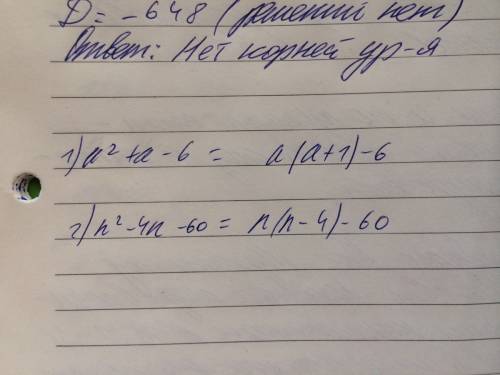 D = -648 (решений нет)
Ответ: Нет корней ур-я
1) a² + a - 6 = a(a+1) - 6
2) n² - 4n - 60 = n(n-4) - 60